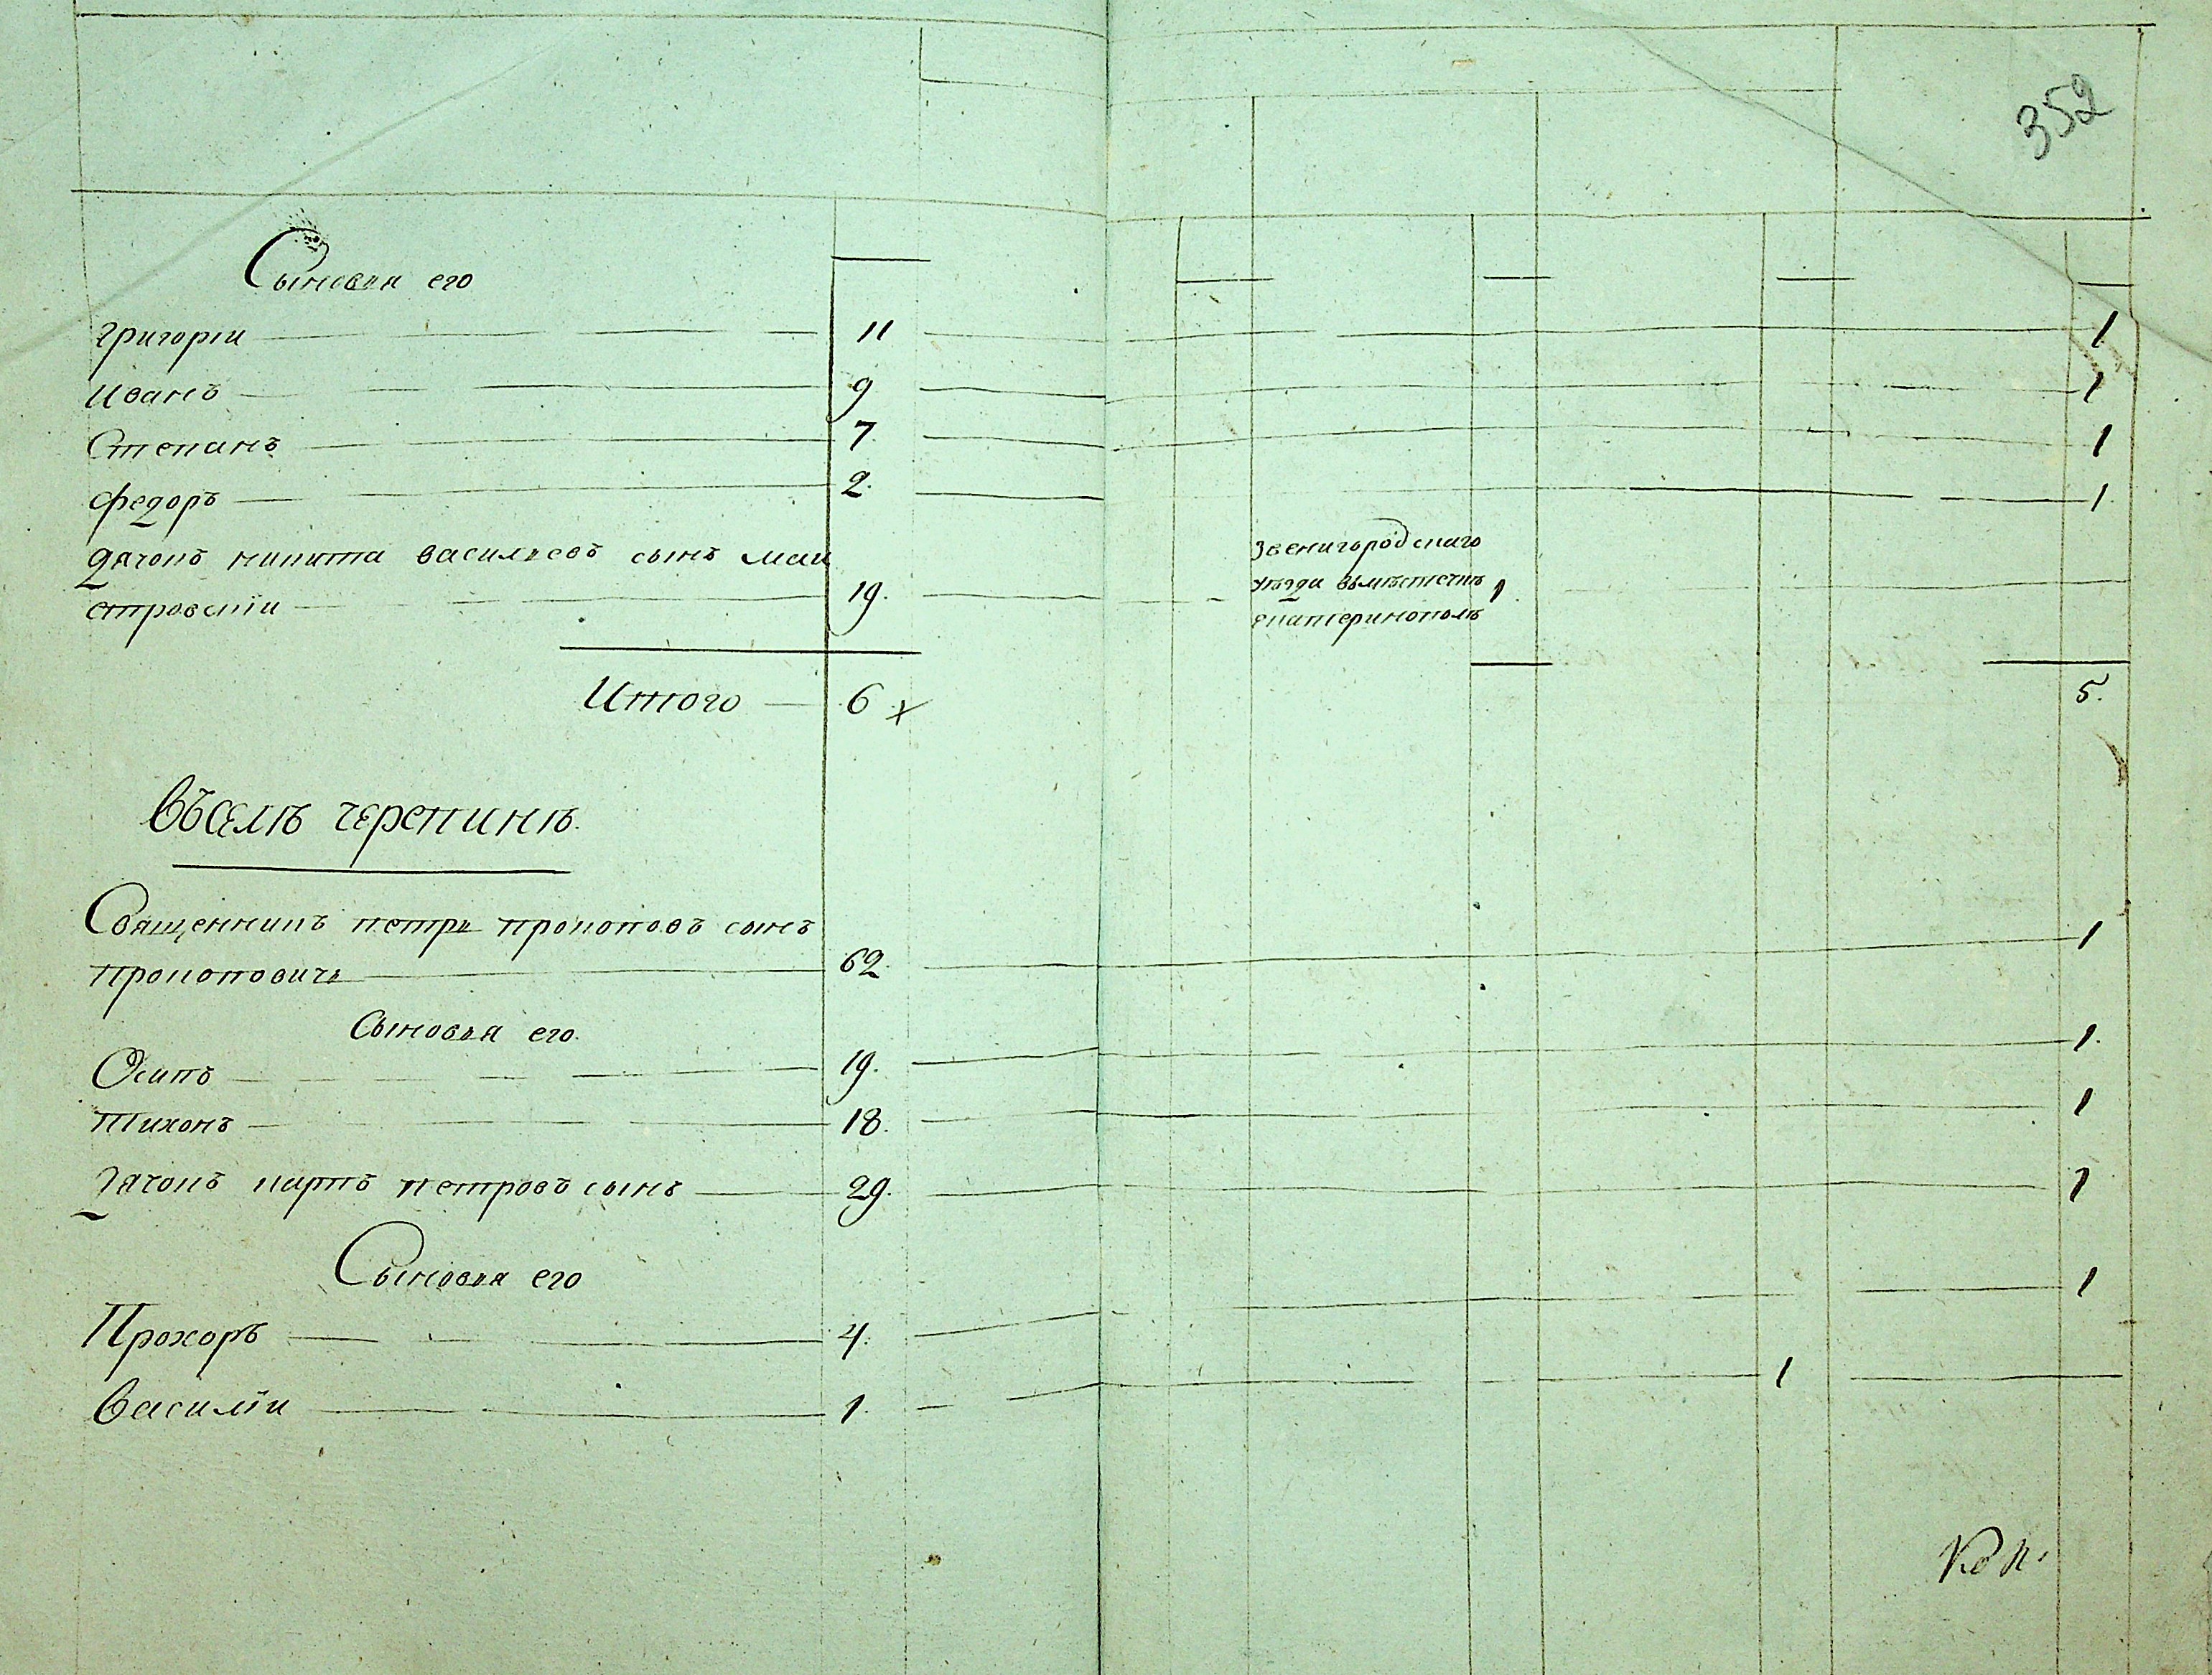 352
Сыновья его
Григорїи 11 1
Иванъ 9 1
Степанъ 7 1
Федоръ 2. 1
Дячокъ никита васильевъ сынъ маи
стровскїи 19.
Звенигородскаго
уѣзда вьмѣстечкѣ 1
екатеринополѣ
Итого 6 х 5.
Въселѣ черепинѣ.
Священникъ петръ прокоповъ сынъ
прокоповичь 62. 1
Сыновья его.
Осипъ 19. 1.
Тихонъ 18. 1
Дячокъ карпъ петровъ сынъ 29. 1
Сыновья его
Прохоръ 4. 1
Василїи 1. 1